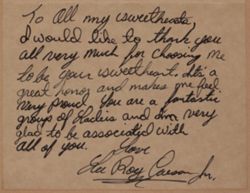 To All my sweethearts,
I would like to thank you
all very much for choosing me
to be your sweetheart. It's a
great honor and makes me feel
very proud. You are a fantastic
group of ladies and I'm very
glad to be associated with
all of you.
Love
Roy Carson Jr.